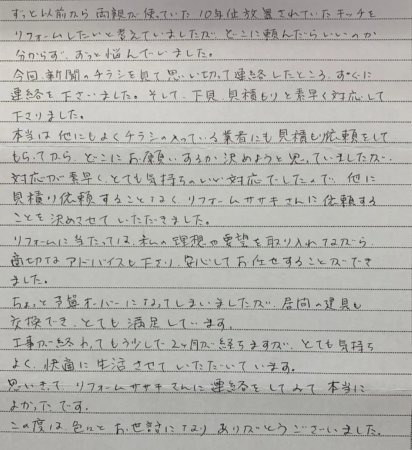 ずっと以前から両親が使っていた10年位放置されていたキッチンを
リフォームしたいと考えていましたが、どこに頼んだらいいのか
分からず、ずっと悩んでいました。
今回、新聞のチラシを見て思い切って連絡したところ、すぐに
連絡を下さいました。そして、下見、見積もりと素早く対応して
下さりました。
本当は他にもよくチラシの入っている業者にも見積も依頼をして
もらってから、どこにお願いするか決めようと思っていましたが、
対応が素早く、とても気持ちのいい対応でしたので、他に
見積り依頼することなく、リフォームササキさんに依頼する
ことを決めさせていただきました。
リフォームに当たっては、私の理想や要望を取り入れながら
適切なアドバイスも下さり、安心してお任せすることができ
ました。
ちょっと予算オーバーになってしまいましたが、居間の建具も
交換でき、とても満足しています。
工事が終わってもう少しで2ヶ月が経ちますが、とても気持ち
よく、快適に生活させていただいています。
思いきって、リフォームササキさんに連絡をしてみて本当に
よかったです。
この度は色々とお世話になりありがとうございました。